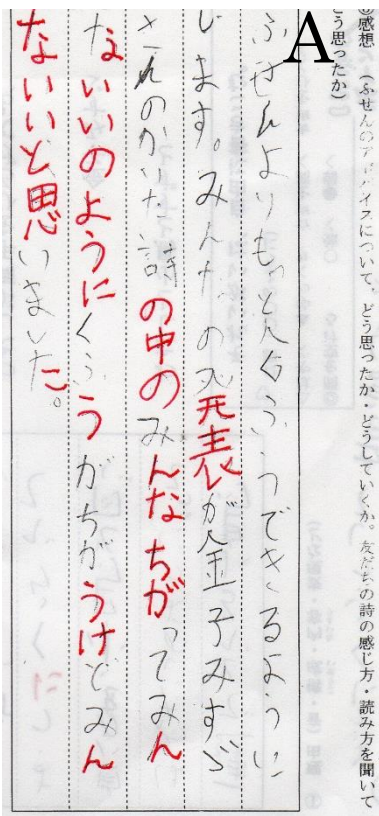 A
③感想　(ふせんのアドバイスについて、どう思ったか・どうしていくか。友だちの詩の感じ方・読み方を聞いて
どう思ったか)
ふせんよりもっとくふうできるように
します。みんなの発表が金子みすゞ
さんのかいた詩の中のみんなちがってみん
ないいのようにくふうがちがうけどみん
ないいと思いました。